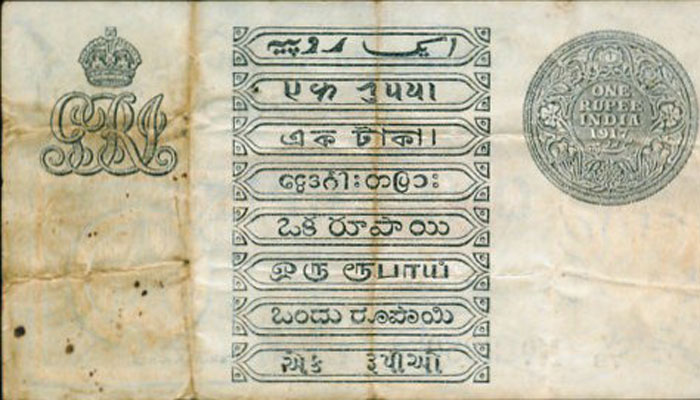 GRI
ایک روپیہ
𑂉𑂍 𑂩𑂳𑂣𑂨𑂰
এক টাকা
ငွေဒင်္ဂါးတပြား
ఒక రూపాయి
ஒரு ரூபாய்
ಒಂದು ರೂಪಾಯಿ
એક રૂપીઓ
ONE
RUPEE
INDIA
1917